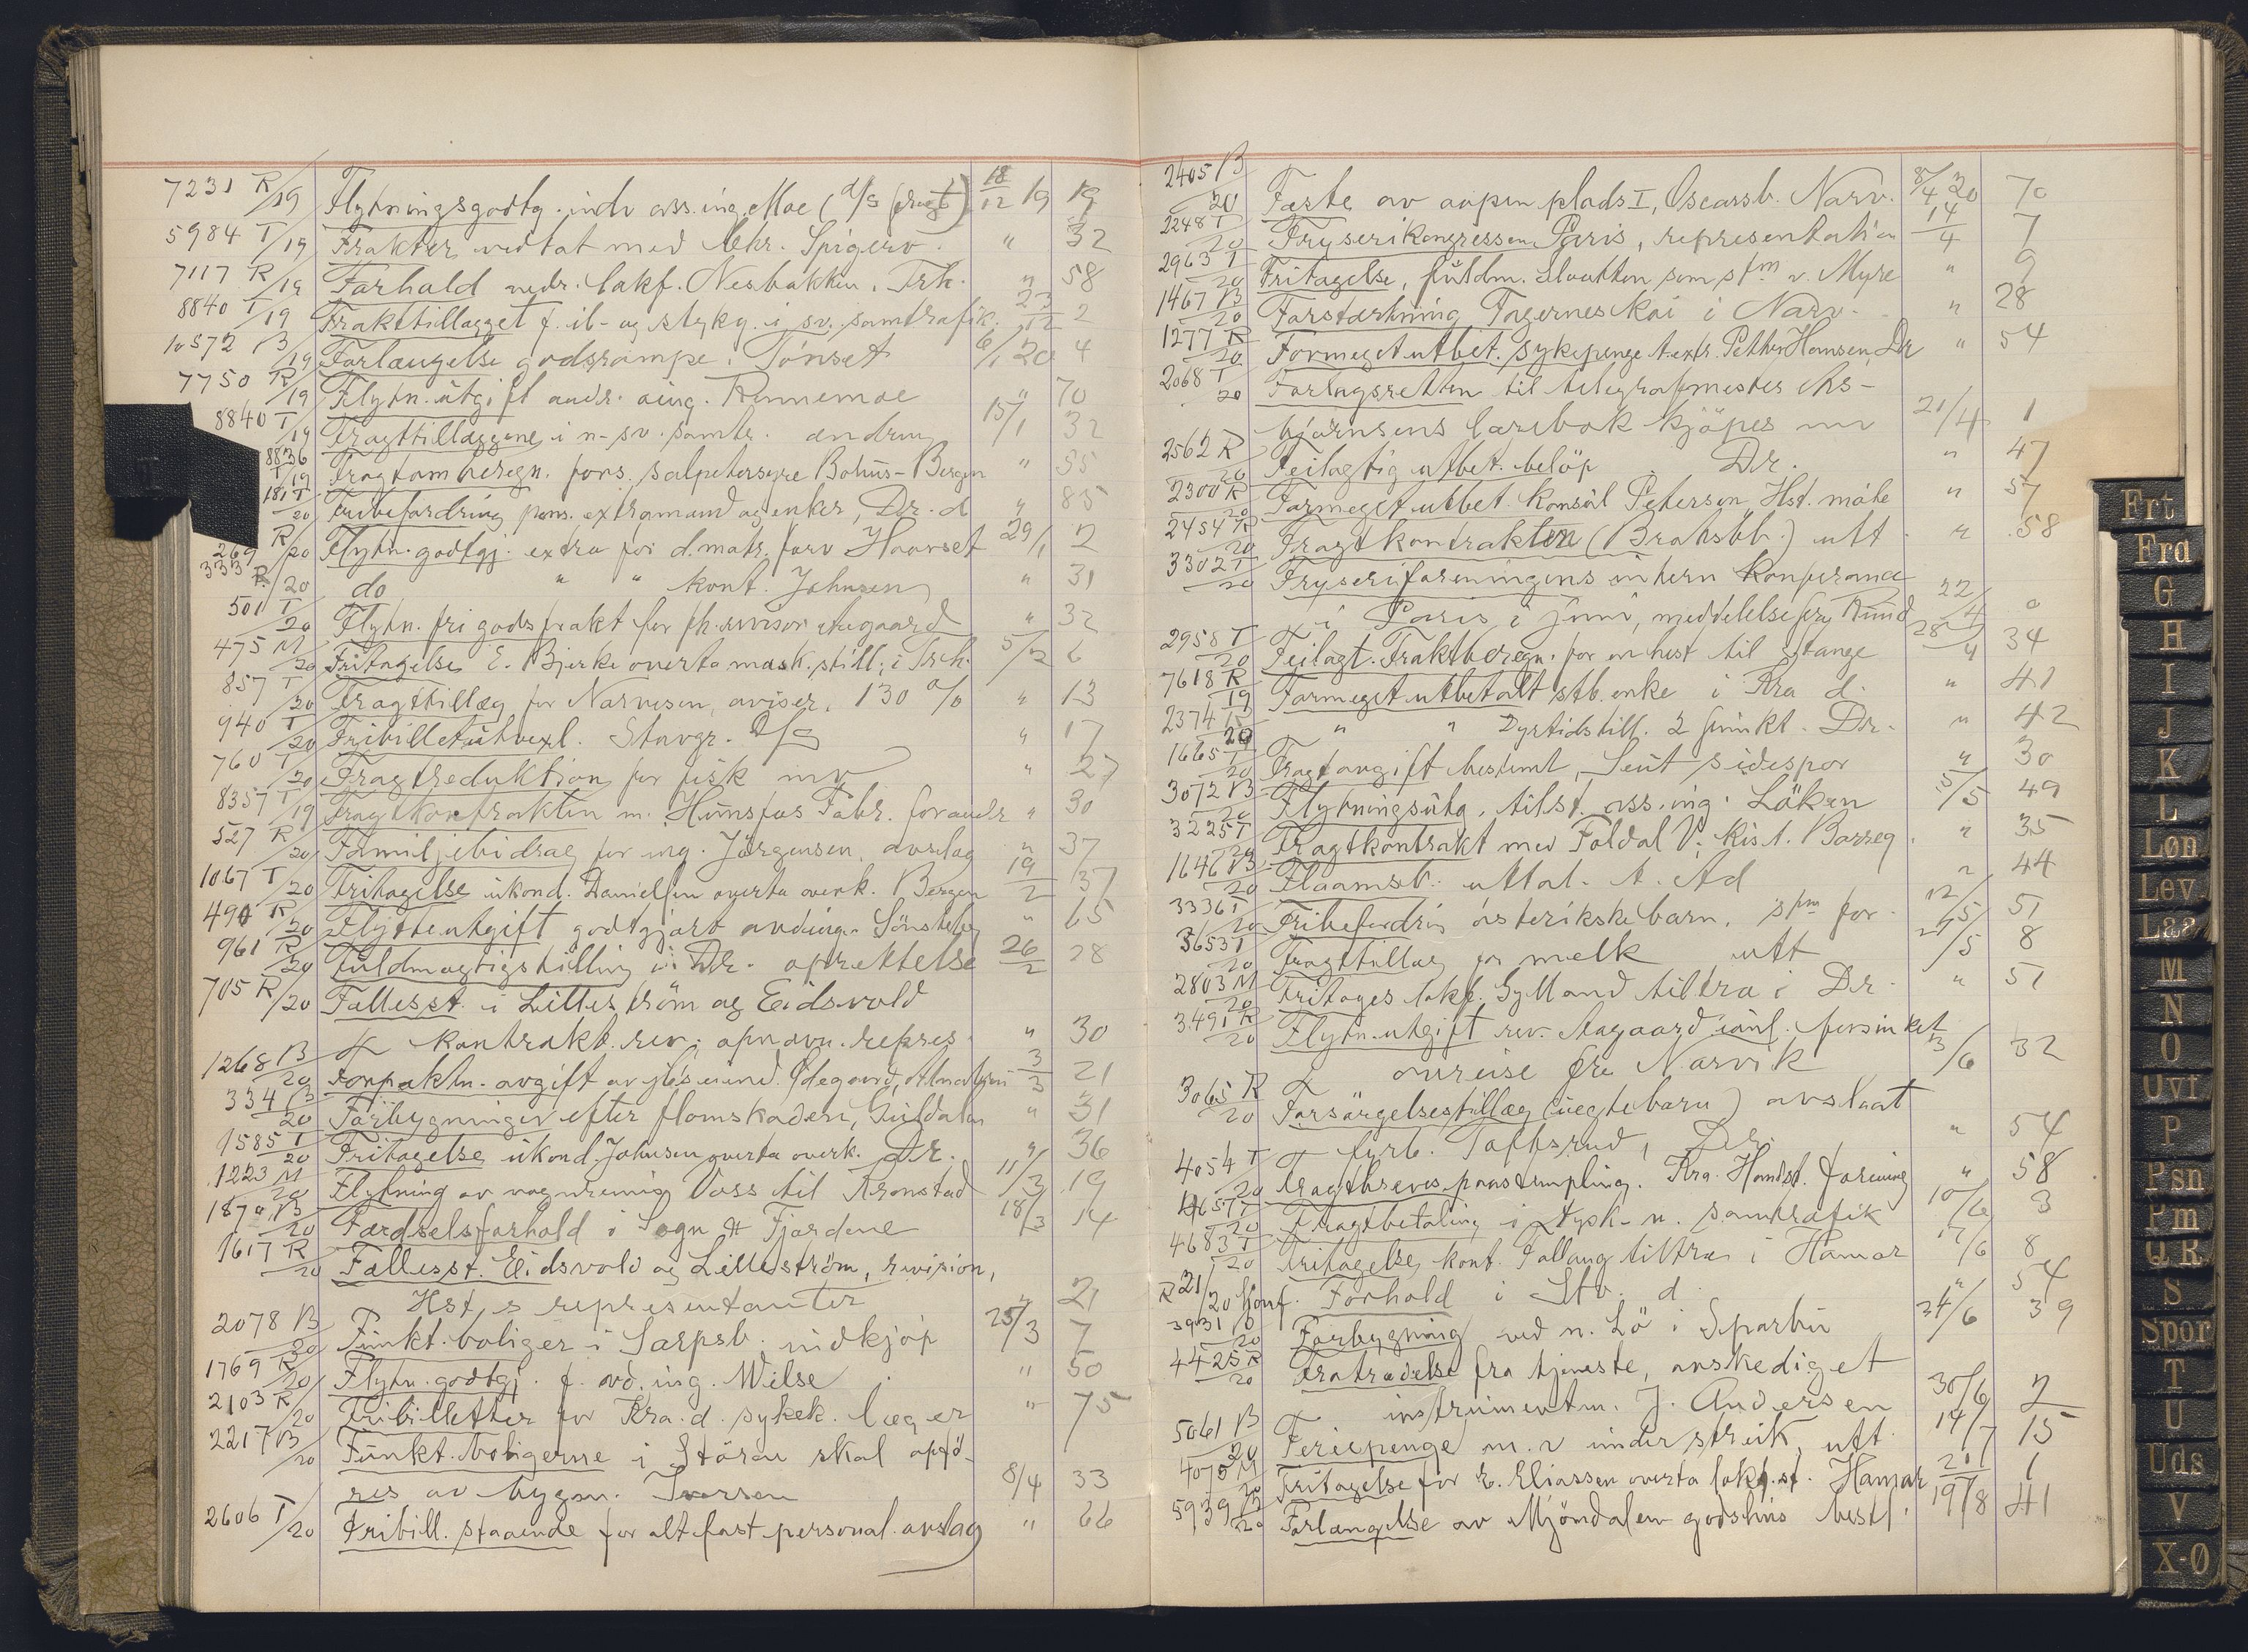 7231 R/19 Flytningsgodtg. indv ass.ing. Moe (a/s fragt) 18/12 19 19
5984 T/19 Frakter vedtat med Chr. Spigerv. " 32
7117 R/19 Forhold vedr. lokf. Nesbakken, Trh. " 58
8840 T/19 Frakttillægget f. il- og stykg. i sv. samtrafik. 23/12 2
10572 B/19 Forlængelse godsrampe, Tönset 6/1 20 4
7750 R/19 Flytn. utgift andr. aing. Rennemoe " 70
8840 T/19 Fragttillæggene i n-sv. samtr. ændring 15/1 32
8836 T/19 Fragtomberegn. fors. salpetersyre Bohus-Bergen " 55
181 T/20 Fribefordring pens. extramand og enker, Dr. d " 85
269 R/20 Flytn. godtgj. extra for d.matr. forv Haavset 29/1 2
333 R/20 do " " kont. Johnsen " 31
501 T/20 Flytn. fri godsfrakt for fh. revisor Aagaard " 32
475 M/20 Fritagelse E. Bjerke overta mask. still. i Trh. 5/2 6
857 T/20 Fragttillæg for Narvesen, aviser, 130 % " 13
940 T/20 Fribilletutvexl. Stavgr. D/S " 17
760 T/20 Fragtreduktion for fisk mv " 27
8357 T/19 Fragtkontrakten m. Hunsfos Fabr. forandr " 30
527 R/20 Familjebidrag for ing. Jörgensen, avslag " 37
1067 T/20 Fritagelse ukond. Danielsen overta overk. Bergen 19/2 37
490 R/20 Flytteutgift godtgjort avd.ing. Sönsteby " 65
961 R/20 Fuldmægtigstilling i Dr. oprettelse 26/2 28
705 R/20 Fællesst. i Lilleström og Eidsvold
kontrakt. rev. opnævn. repres. " 30
1268 B/20 Forpaktn. avgift av jb's eiend. Ödegaard, 3/3 21
334 B/20 Forbygninger efter flomskaden, Guldalen " 31
1585 T/20 Fritagelse ukond. Johnsen overta overk. Dr. " 36
1223 M/20 Flytning av vognrennig Voss til Kronstad 11/3 19
1870 B/20 Færdselsforhold i Sogn & Fjordene 18/3 14
1617 R/20 Fællesst. Eidsvold og Lilleström, revision,
Hst,s representanter " 21
2078 B/20 Funkt. boliger i Sarpsb. indkjöp 25/3 7
1769 R/20 Flytn. godtgj. f. avd. ing. Wilse " 50
2103 R/20 Fribilletter for Kra. d. sykek. læger " 75
2217 B/20 Funkt. boligerne i Stören skal opfö-
res av bygm. Iversen 8/4 33
2606 T/20 Fribill. staaende for alt fast personal. avslag " 66
2405 B/20 Feste av aapen plads I, Oscarsb. Narv. 8/4 20 70
2248 T/20 Fryserikongressen Paris, representation 14/4 7
2963 T/20 Fritagelse, fuldm. Slaatten som sfm v. Myre " 9
1467 B/20 Forstærkning Fagernes kai i Narv. " 28
1277 R/20 Formeget utbet. sykepenge t. extr. Petter Hansen, Dr " 54
2068 T/20 Forlagsretten til telegrafmester As-
björnsens lærebok kjöpes nu 21/4 1
2562 R/20 Feilagtig utbet. belöp Dr. " 47
2300 R/20 Formeget utbet. Konsul Petersen, Hst. maate " 57
2454 R/20 Fragtkontrakten (Bratsbb.) utt " 58
3302 T/20 Fryseriforeningens intern konferance
i Paris i juni, meddelelse fra Rund 22/4 9
2958 T/20 Feilagt. Fraktberegn. for en hest til Stange 28/4 34
7618 R/19 Formeget utbetalt stb. enke i Kra d. " 41
2374 R/20 " " Dyrtidstill. 2 funkt. Dr. " 42
1665 T/20 Fragtavgift bestemt, Seut sidespor " 30
3072 B/20 Flytningsutg. tilst. ass. ing. Löken 5/5 49
3225 T/20 Fragtkontrakt med Foldal V. Kist. Borreg. " 35
1646 B/20 Flaamsb. uttal. t. Ad " 44
3336 T/20 Fribefordrin österikske barn, spm for 12/5 51
3653 T/20 Fragttillæg for melk utt 21/5 8
2803 M/20 Fritages lokf. Gylland tiltra i Dr. " 51
3491 R/20 Flytn. utgift rev. Aagaard, anl. forsinket
avreise fra Narvik 3/6 32
3065 R/20 Forsörgelsestillæg (uegte barn) avslaat
fyrb. Toffsrud, Dr. " 54
4054 T/20 Fragtbrevs paastempling. Kra. Handst. forening " 58
4657 T/20 Fragtbetaling i tysk-n. samtrafik 10/6 3
4683 T/20 Fritagelse kont. Fallang tiltræ i Hamar 17/6 8
R 21/20 konf. Forhold i Stv. d. " 54
3931 B/20 Forbygning ved n. Lö i Sparbu 24/6 39
4425 R/20 Fratrædelse fra tjeneste, avskediget
instrumentm. J. Andersen 30/6 2
5061 B/20 Feriepenge m. v under streik, utt. 14/7 15
4075 M/20 Fritagelse for E. Eliassen overta lokf. st. Hamar 21/7 1
5939 B/20 Forlængelse av Mjöndalen godshus best. 19/8 41
Frt
Frd
G
H
I
J
K
L
Løn
Lev.
Laa
M
N
O
Ovf
P
Psn
Pm
Q R
S
Spor
T
U
Uds
V
X-Ø